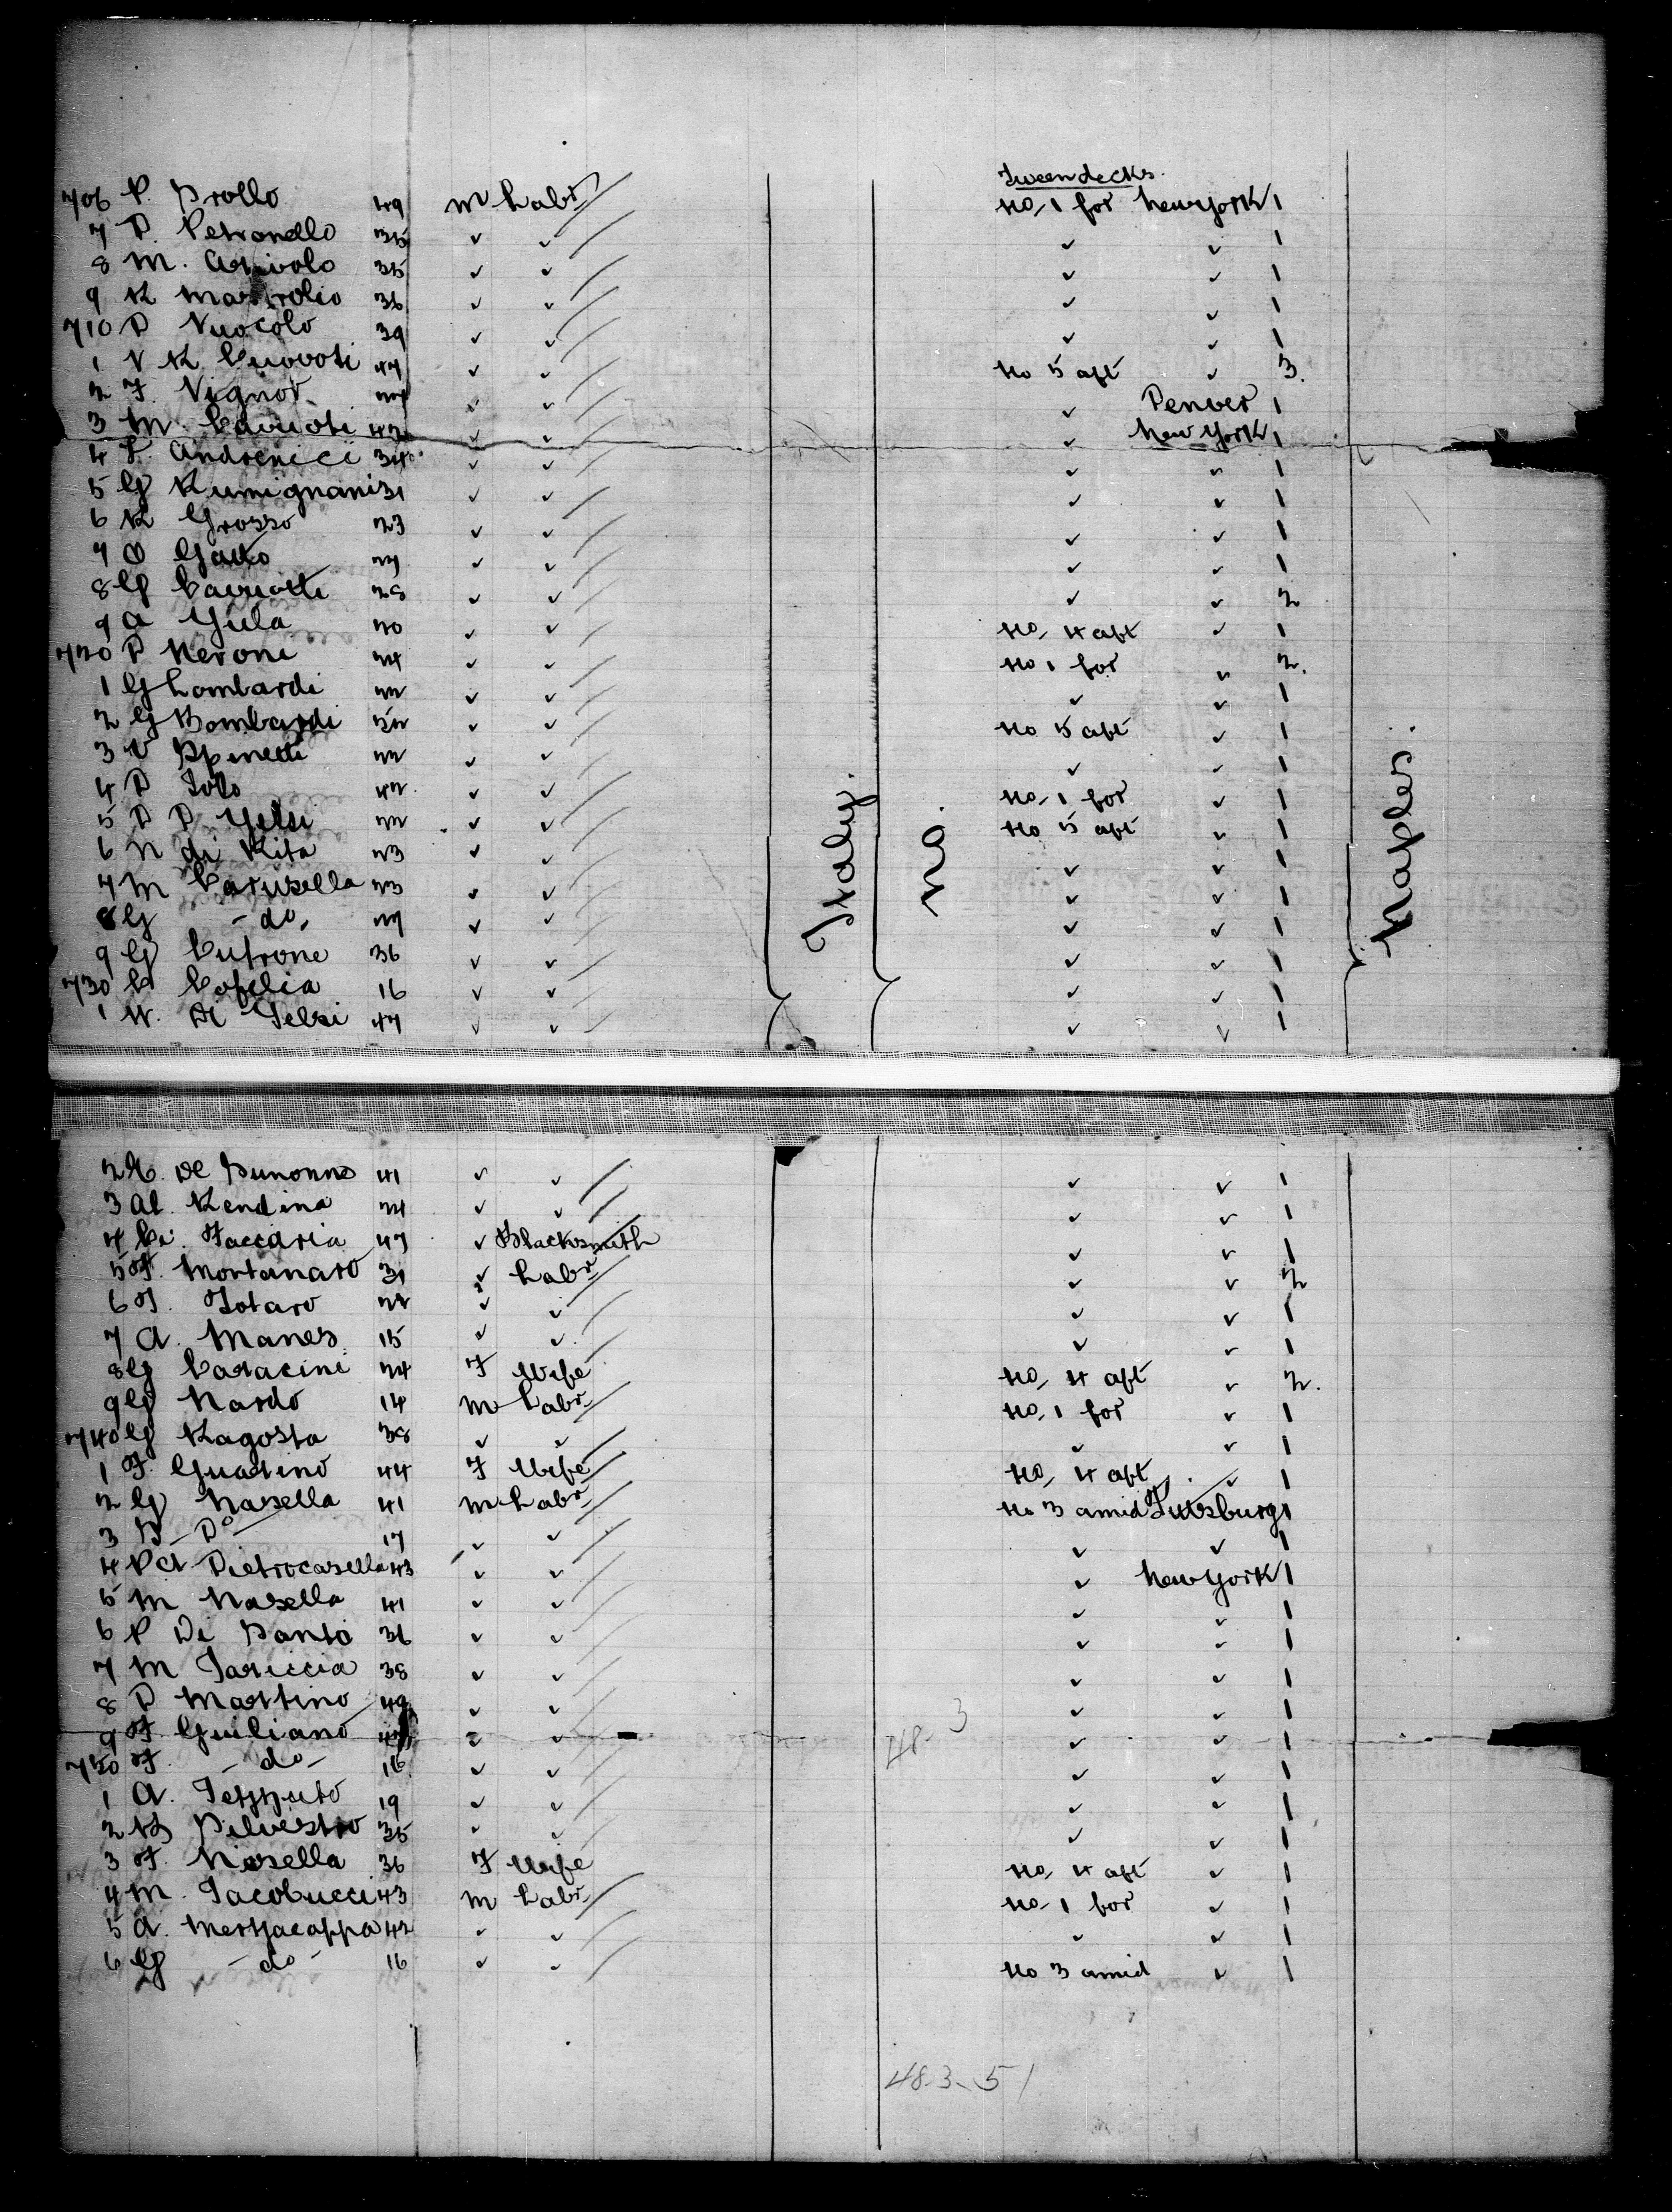 Tweendecks.
706 P. Prollo 49 M Labr No, 1 for New York 1
7 D. Petronello 35 ✓ ✓ ✓ ✓ 1
8 M. 35 ✓ ✓ ✓ ✓ 1
9 R 36 ✓ ✓ ✓ ✓ 1
710 D Nuocolo 39 ✓ ✓ ✓ ✓ 1
1 V R 47 ✓ ✓ No 5 aft ✓ 3.
2 F. Vignor 27 ✓ ✓ ✓ Denver 1
3 M. 42 ✓ ✓ ✓ New York 1
4 F. Andrenici 34 ✓ ✓ ✓ ✓ 1
5 G Rumignani 31 ✓ ✓ ✓ ✓ 1
6 R Grosso 23 ✓ ✓ ✓ ✓ 1
7 O Gatto 27 ✓ ✓ ✓ ✓ 1
8 G 28 ✓ ✓ ✓ ✓ 2
9 A Yula 20 ✓ ✓ No, 4 aft ✓ 1
720 D Neroni 24 ✓ ✓ No 1 for ✓ 2.
1 G Lombardi 22 ✓ ✓ ✓ ✓ 1
2 G Bombardi 52 ✓ ✓ No 5 aft ✓ 1
3 V Spinelli 22 ✓ ✓ ✓ ✓ 1
4 D 42 ✓ ✓ No, 1 for ✓ 1
5 D D Yelsi 22 ✓ ✓ No 5 aft ✓ 1
6 N di Rita 23 ✓ ✓ ✓ ✓ 1
7 M Carusella 23 ✓ ✓ ✓ ✓ 1
8 G - do, 27 ✓ ✓ ✓ ✓ 1
9 G Cutrone 36 ✓ ✓ ✓ ✓ 1
730 C Cofelia 16 ✓ ✓ ✓ ✓ 1
1 N. Di Yelsi 47 ✓ ✓ ✓ ✓ 1
Italy.
No.
Naples.
2 De 41 ✓ ✓ ✓ ✓ 1
3 Al. Rendina 24 ✓ ✓ ✓ ✓ 1
4 Ci. Zaccaria 47 ✓ Blacksmith ✓ ✓ 1
5 F. Montanaro 31 ✓ Labr ✓ ✓ 2
6 F. Totaro 22 ✓ ✓ ✓ ✓ 1
7 A. Manes 15 ✓ ✓ ✓ ✓ 1
8 G Caracini 24 F Wife No, 4 aft ✓ 2.
9 G Nardo 14 M Labr No, 1 for ✓ 1
740 G Ragosta 38 ✓ ✓ ✓ ✓ 1
1 F. Guarino 44 F Wife No, 4 aft ✓ 1
2 G Nasella 41 M Labr No 3 amid 1
3 D - Do 17 ✓ ✓ ✓ ✓ 1
4 P A Pietrocasella 43 ✓ ✓ ✓ New York 1
5 M Nasella 41 ✓ ✓ ✓ ✓ 1
6 P Di Santo 36 ✓ ✓ ✓ ✓ 1
7 M Iariccia 38 ✓ ✓ ✓ ✓ 1
8 D Martino 49 ✓ ✓ ✓ ✓ 1
9 F Giuliano ✓ ✓ ✓ ✓ 1
48-3
750 F. - do - 16 ✓ ✓ ✓ ✓ 1
1 A. 19 ✓ ✓ ✓ ✓ 1
2 Silvestro 35 ✓ ✓ ✓ ✓ 1
3 F. Nasella 36 F Wife No, 4 aft ✓ 1
4 M. Iacobucci 43 M Labr No, 1 for ✓ 1
5 A. 42 ✓ ✓ ✓ ✓ 1
6 G - do - 16 ✓ ✓ No 3 amid ✓ 1
48-3-51